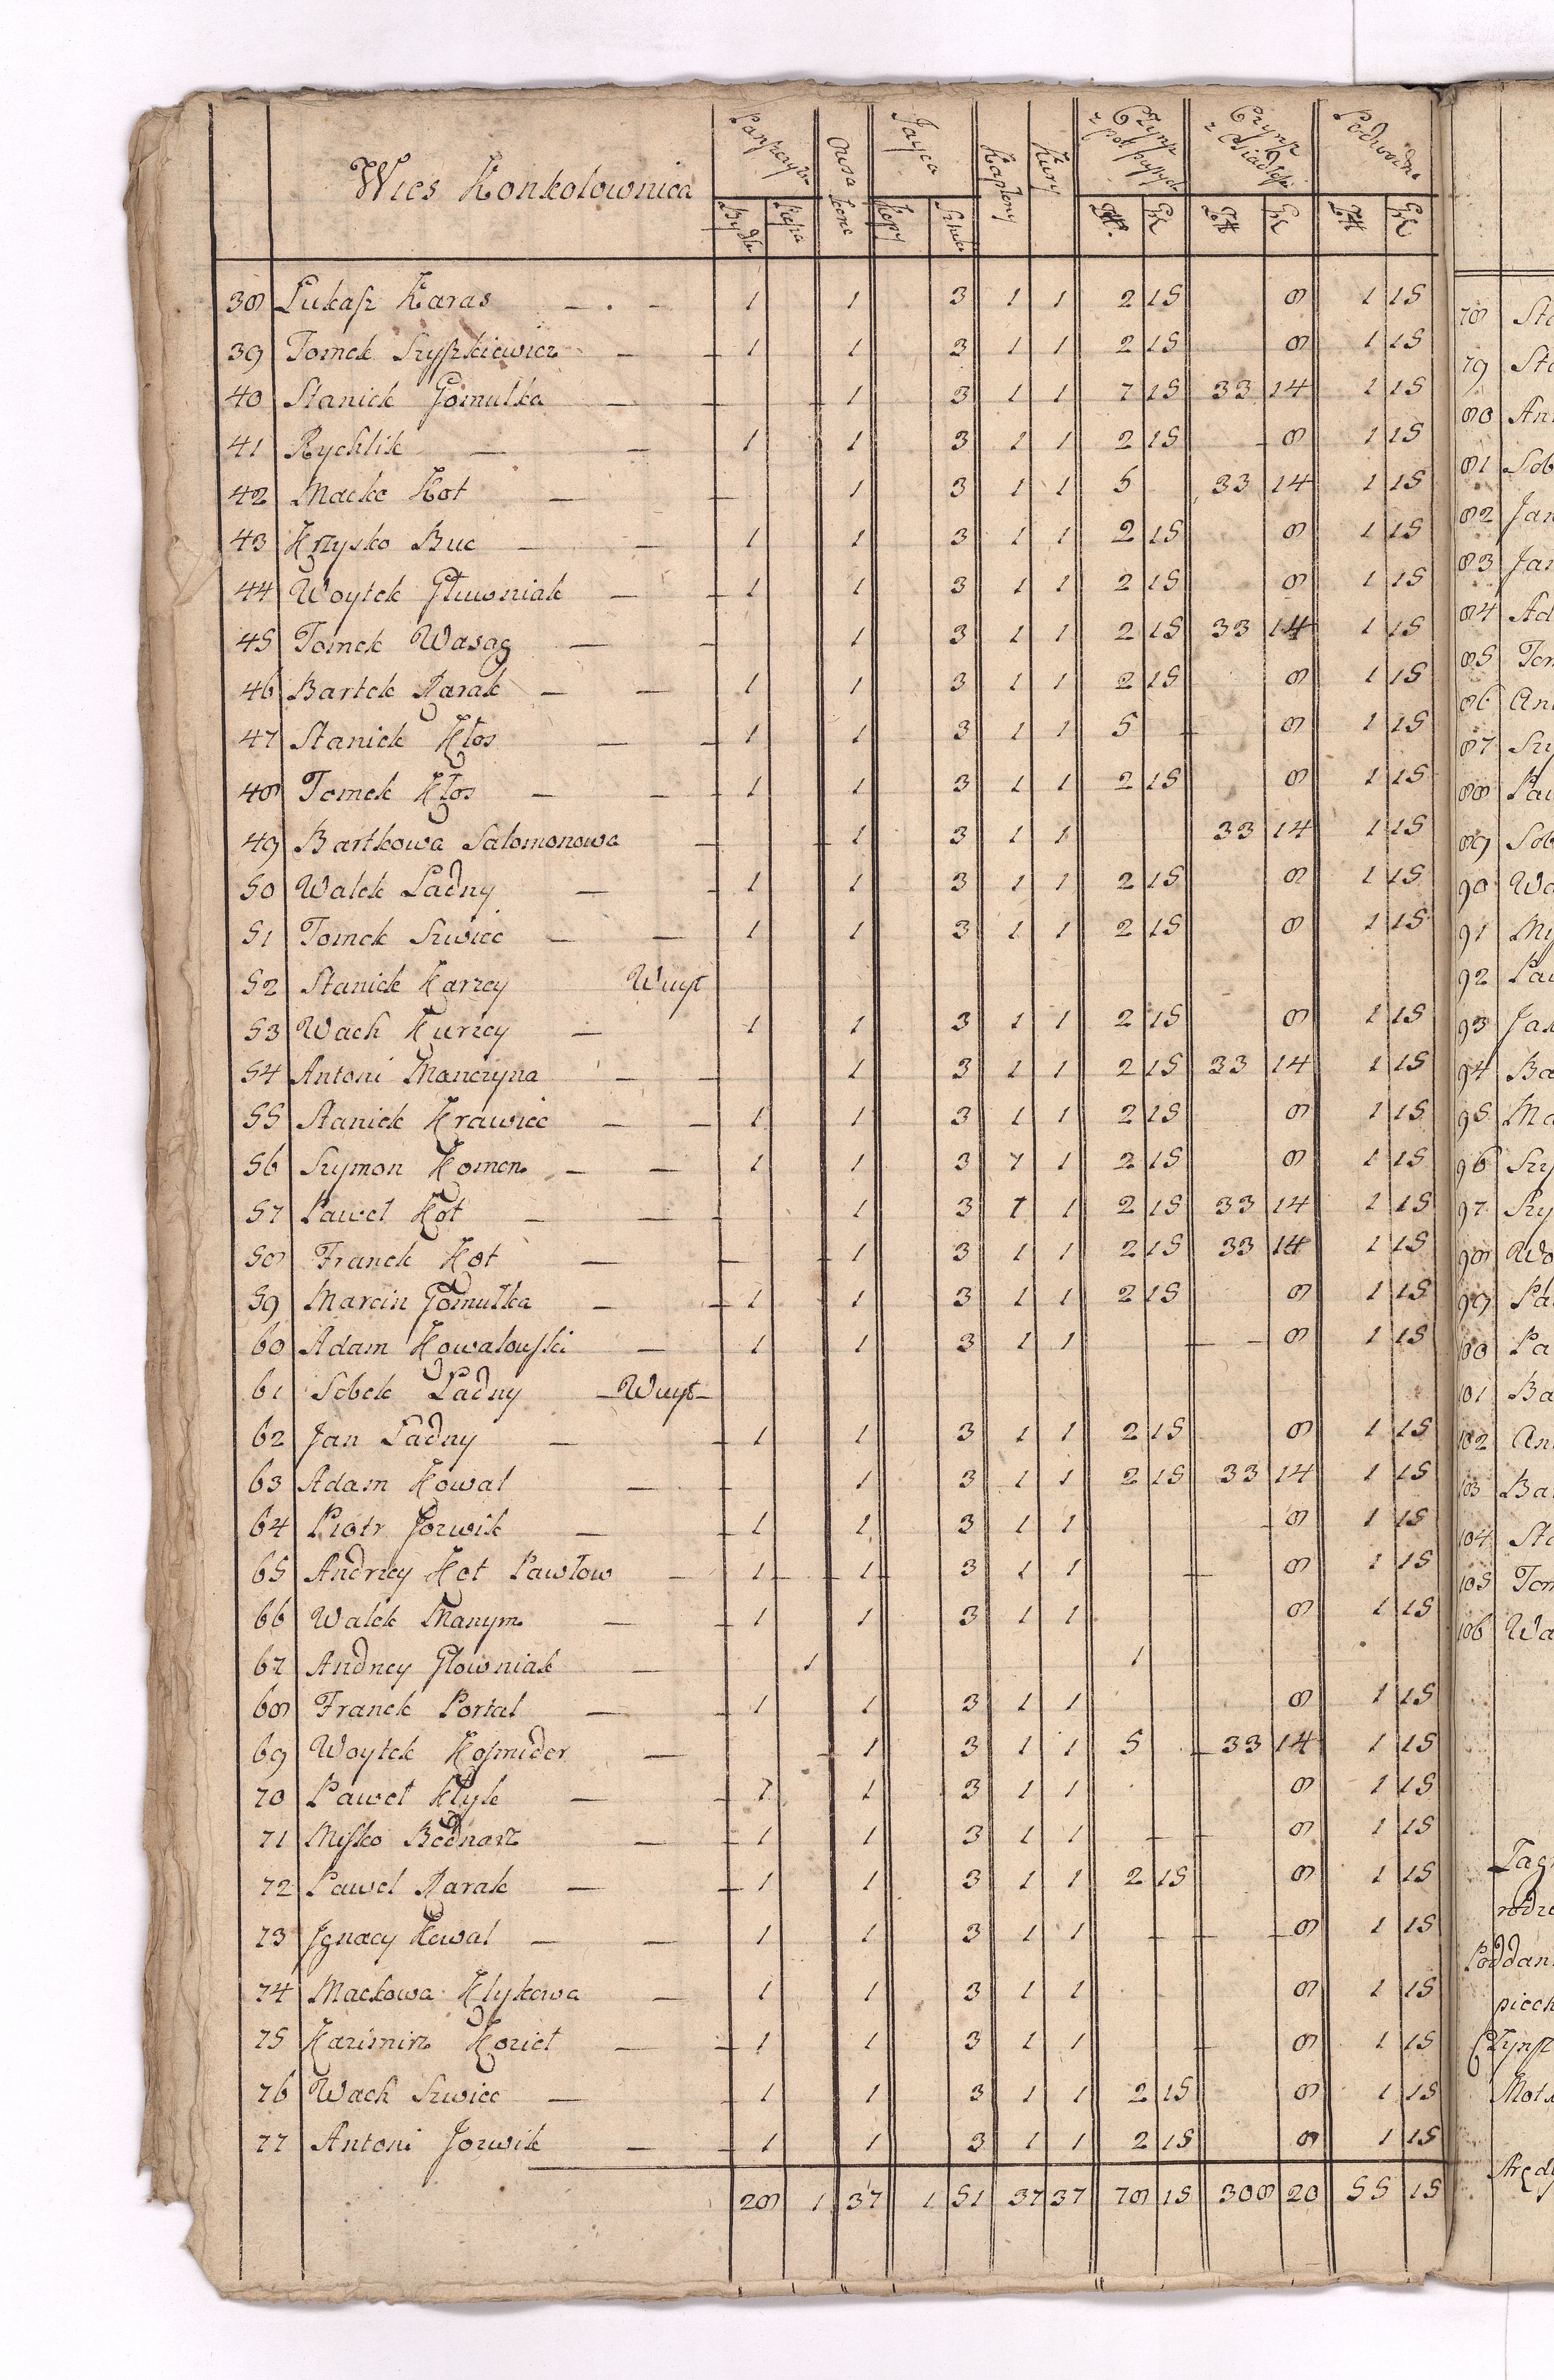 Wies Konkolownica
Panszczyzna Owsa Jayca Kapłony Kury Czynsz Czynsz Podwodne
Bydł: Piesza Kopy Sztuki Zł. Gr Zł Gr Zł Gr
38 Lukasz Karas — . — 1 1 3 1 1 2 15 8 1 15 78
39 Tomek Szyszkiewicz — — 1 1 3 1 1 2 15 8 1 15 79
40 Staniek Gomulka — — 1 3 1 1 7 15 33 14 1 15 80
41 Rychlik — — 1 1 3 1 1 2 15 8 1 15 81
42 Macko Kot — — 1 3 1 1 5 33 14 1 15 82
43 Krzysko Buc — — 1 1 3 1 1 2 15 8 1 15 83
44 Woytek Gluwniak — — 1 1 3 1 1 2 15 8 1 15 84
45 Tomek Wasag — — 1 3 1 1 2 15 33 14 1 15 85
46 Bartek Rarak — — 1 1 3 1 1 2 15 8 1 15 86
47 Staniek Kłos — — 1 1 3 1 1 5 8 1 15 87
48 Tomek Kłos — — 1 1 3 1 1 2 15 8 1 15 88
49 Bartkowa Salomonowa — 1 3 1 1 33 14 1 15 89
50 Walek Ladny — — 1 1 3 1 1 2 15 8 1 15 90
51 Tomek Szwiec — — 1 1 3 1 1 2 15 8 1 15 91
52 Staniek Karzcy Wuyt 92
53 Wach Kurzcy — 1 1 3 1 1 2 15 8 1 15 93
54 Antoni Manczyna — — 1 3 1 1 2 15 33 14 1 15 94
55 Staniek Krawiec — — 1 1 3 1 1 2 15 8 1 15 95
56 Szymon Komen — — 1 1 3 1 1 2 15 8 1 15 96
57 Pawel Kot — — 1 3 1 1 2 15 33 14 1 15 97
58 Franek Kot — — 1 3 1 1 2 15 33 14 1 15 98
59 Marcin Gomulka — — 1 1 3 1 1 2 15 8 1 15 99
60 Adam Kowalowski — 1 1 3 1 1 — — 8 1 15 100
61 Sobek Ladny — Wuyt — 101
62 Jan Ladny — — 1 1 3 1 1 2 15 8 1 15 102
63 Adam Kowal — — 1 3 1 1 2 15 33 14 1 15 103
64 Piotr Jozwik — — 1 1 3 1 1 8 1 15 104
65 Andrzey Kot Pawłow — 1 1 3 1 1 8 1 15 105
66 Walek Manym — — 1 1 3 1 1 8 1 15 106
67 Andrzey Głowniak — 1 1
68 Franek Portal — — 1 1 3 1 1 8 1 15
69 Woytek Kosmider — 1 3 1 1 5 33 14 1 15
70 Pawel Kłyk — — 1 1 3 1 1 8 1 15
71 Misko Bednarz — — 1 1 3 1 1 8 1 15
72 Pawel Rarak — — 1 1 3 1 1 2 15 8 1 15
73 Jgnacy Kowal — — 1 1 3 1 1 8 1 15
74 Mackowa Klykowa — 1 1 3 1 1 8 1 15
75 Kazimirz Koziet — — 1 1 3 1 1 8 1 15
76 Wach Szwiec — — 1 1 3 1 1 2 15 8 1 15
77 Antoni Jozwik — — 1 1 3 1 1 2 15 8 1 15
28 1 37 1 51 37 37 78 15 308 20 55 15